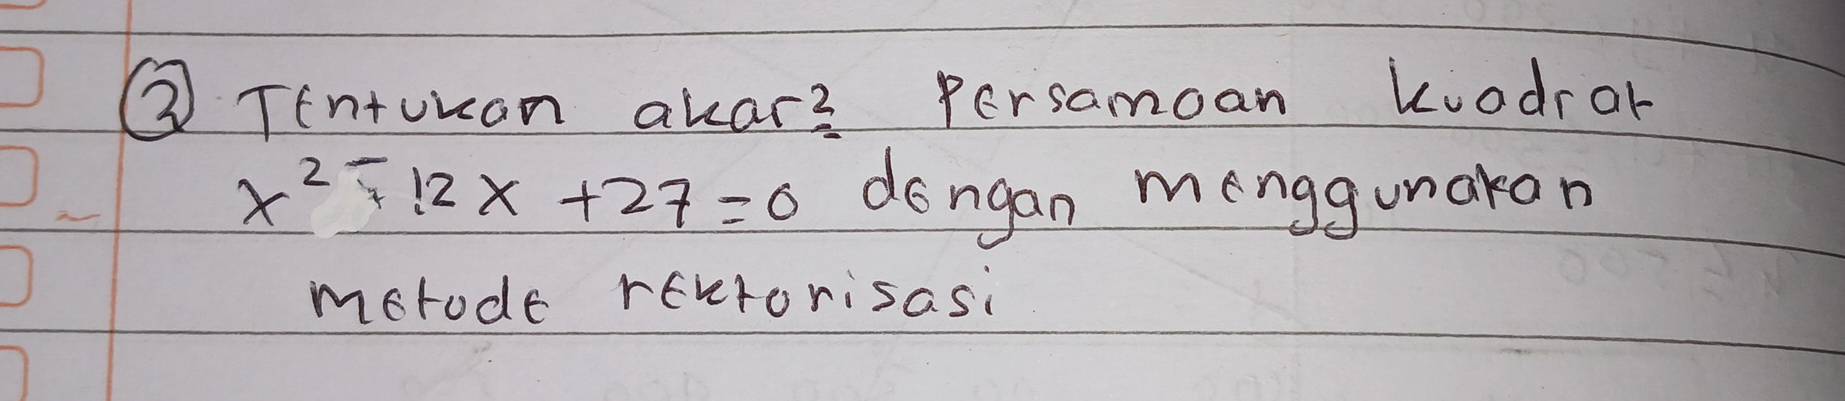 ② Tentukan akar2 Persamaan kuadrat
x² - 12x + 27 = 0 dengan menggunakan
metode rektorisasi